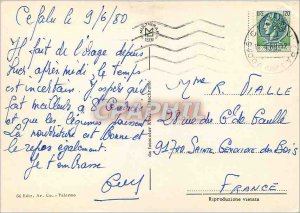 Cefalu le 9/6/80
Il fait de l'orage depuis
hier après midi le temps
est incertain. J'espère qu'il
fait meilleur à St
et que les légumes poussent
La nourriture est bonne et
le repos également.
Je t'embrasse
Mme R. VIALLE
98 rue Ch. de Gaulle
91700 Sainte Geneviève des Bois
FRANCE
56 Edit. Ar. Co. - Palermo
Riproduzione vietata
120
CPAPHIL